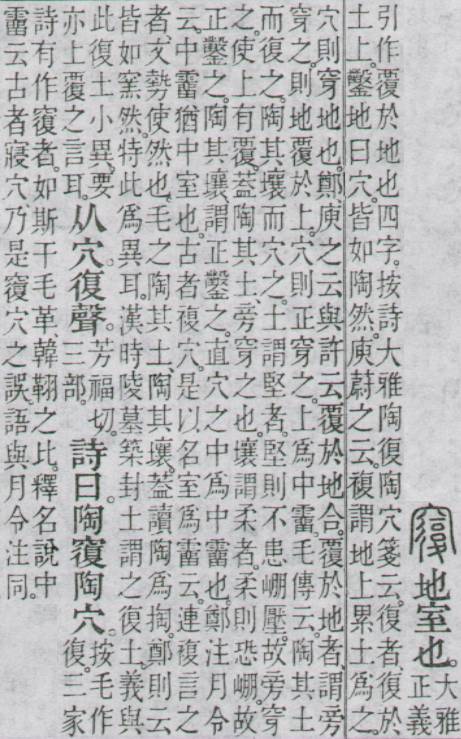 𥨍地室也。大雅
正義
引作覆於地也四字。按詩大雅陶復陶穴箋云。復者、復於
土上。鑿地曰穴。皆如陶然。庾蔚之云。複謂地上累土爲之。
穴則穿地也。鄭、庾之云與許云覆於地合。覆於地者、謂旁
穿之。則地覆於上。穴則正穿之。上爲中霤。毛傳云。陶其土
而復之。陶其壤而穴之。土謂堅者。堅則不患崩壓。故旁穿
之。使上有覆。蓋陶其土、旁穿之也。壤謂柔者。柔則恐崩。故
正鑿之。陶其壤、謂正鑿之。直穴之中爲中霤也。鄭注月令
云。中霤猶中室也。古者複穴。是以名室爲霤云。連複言之
者、文勢使然也。毛之陶其土、陶其壤。蓋讀陶爲掏。鄭則云
皆如窯然。特此爲異耳。漢時陵墓築封土謂之復土。義與
此復土小異。要
亦上覆之言耳。从穴復聲。芳福切。
三部。詩曰陶𥨍陶穴。按毛作
復。三家
詩有作𥨍者。如斯干毛革韓䩹之比。釋名說中
霤云古者寢穴乃是𥨍穴之誤。語與月令注同。